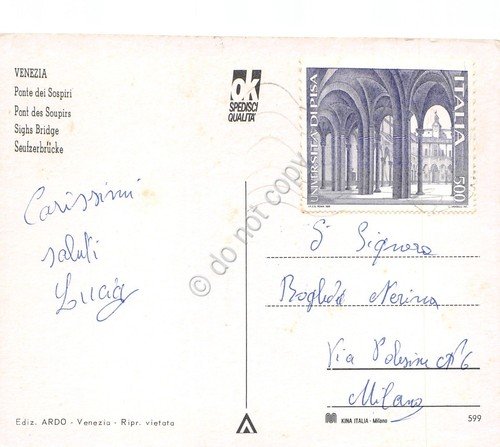 VENEZIA
Ponte dei Sospiri
Pont des Soupirs
Sighs Bridge
Seufzerbrücke
ok
SPEDISCI
QUALITÀ
UNIVERSITÀ DI PISA
ITALIA
500
Carissimi
saluti
Lucia
Signora
Nerina
Via
Milano
© do not copy
Ediz. ARDO - Venezia - Ripr. vietata
KINA ITALIA - Milano
599